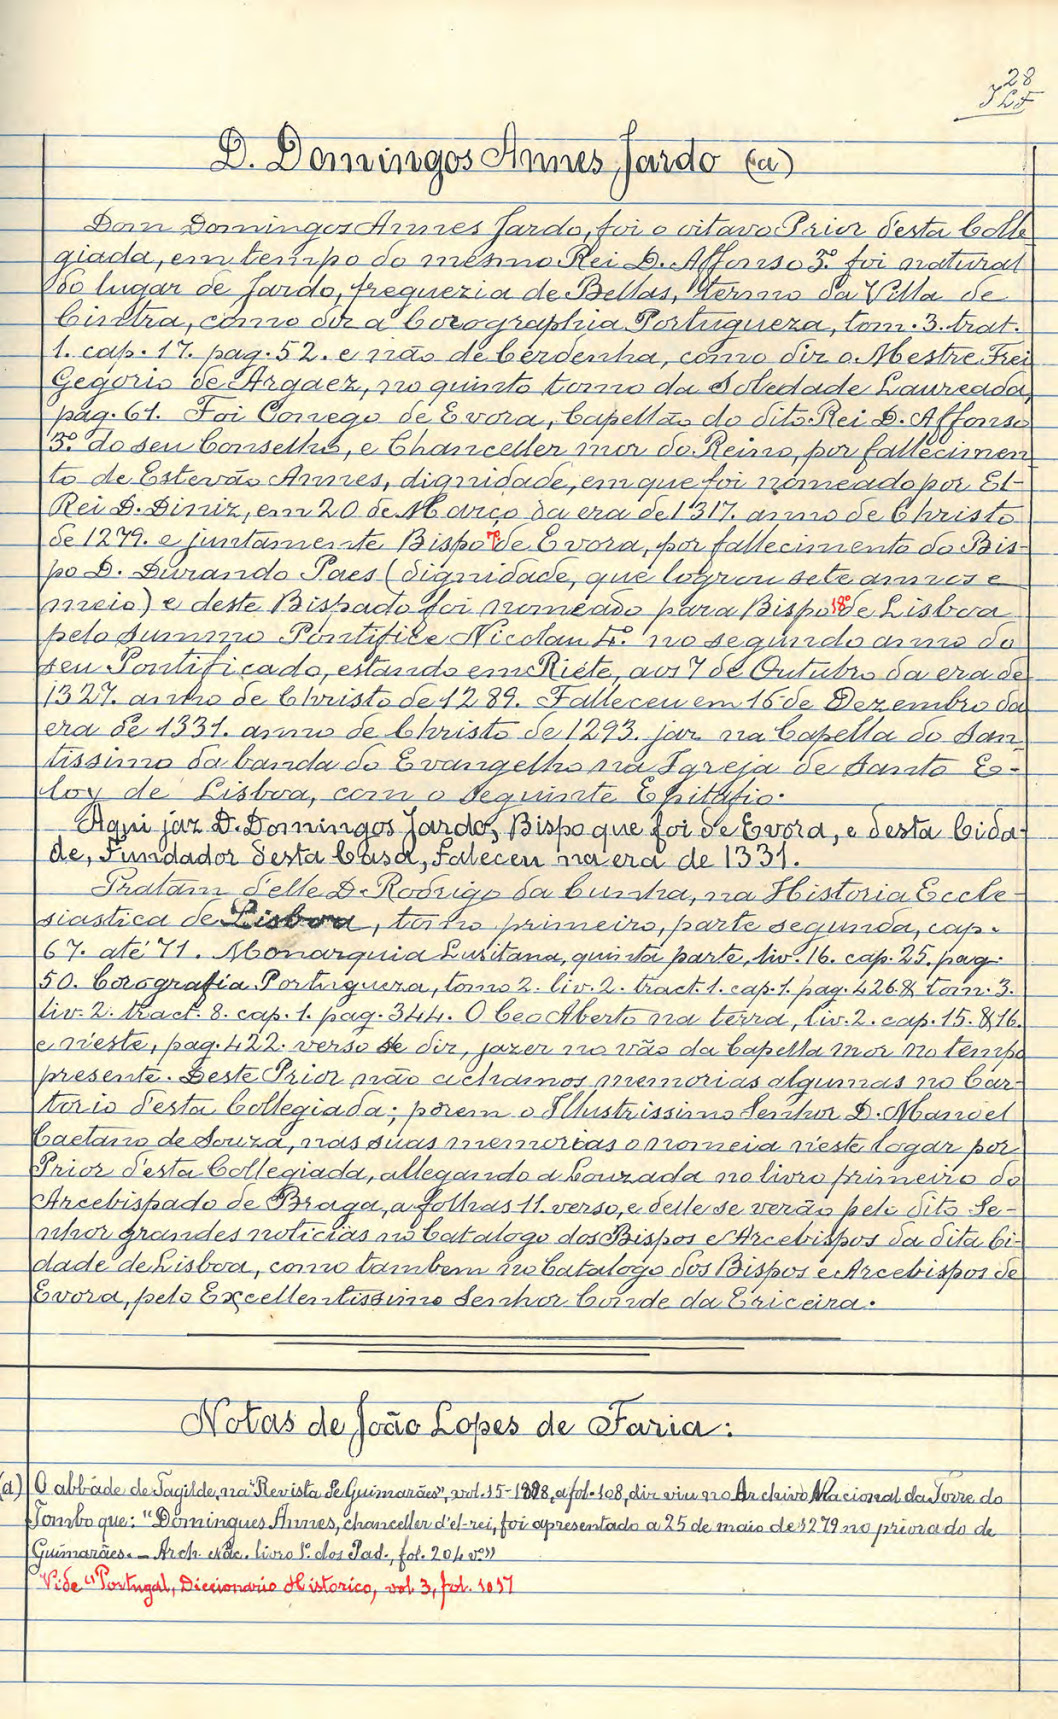 28
JLF
D. Domingos Annes Jardo (a)
Dom Domingos Annes Jardo, foi o oitavo Prior d'esta Colle-
giada, em tempo do mesmo Rei D. Affonso 3º. foi natural
do lugar de Jardo, freguezia de Bellas, termo da Villa de
Cintra, como diz a Corographia Portugueza, tom. 3. trat.
1. cap. 17. pag. 52. e não de Cerdenha, como diz o Mestre Frei
Gegorio de Argaez, no quinto tomo da Soledade Laureada,
pag. 61. Foi Conego de Evora, Capellão do dito Rei D. Affonso
3º. do seu Conselho, e Chanceller mor do Reino, por fallecimen
to de Estevão Annes, dignidade, em que foi nomeado por El-
Rei D. Diniz, em 20 de Março da era de 1317. anno de Christo
de 1279. e juntamente Bispo de Evora, por fallecimento do Bis-
po D. Durando Paes (dignidade, que logrou sete annos e
meio) e deste Bispado foi nomeado para Bispo 10º de Lisboa
pelo Summo Pontifice Nicolau 4º. no segundo anno do
seu Pontificado, estando em Riéte, aos 7 de Outubro da era de
1327. anno de Christo de 1289. Falleceu em 16 de Dezembro da
era de 1331. anno de Christo de 1293. jaz na Capella do San-
tissimo da banda do Evangelho na Igreja de Santo E-
loy de Lisboa, com o seguinte Epitafio.
Aqui jaz D. Domingos Jardo, Bispo que foi de Evora, e desta Cida-
de, Fundador d'esta Casa, Faleceu na era de 1331.
Tratam d'elle D. Rodrigo da Cunha, na Historia Eccle-
siastica de Lisboa, tomo primeiro, parte segunda, cap.
67. até 71. Monarquia Luzitana, quinta parte, liv. 16. cap. 25. pag.
50. Corografia Portugueza, tomo 2. liv. 2. tract. 1. cap. 1. pag. 426. & tom. 3.
liv. 2. tract. 8. cap. 1. pag. 344. O Ceo Aberto na terra, liv. 2. cap. 15. & 16.
e n'este, pag. 422. verso se diz, jazer no vão da Capella mor no tempo
presente. Deste Prior não achamos memorias algumas no Car-
torio d'esta Collegiada; porem o Illustrissimo Senhor D. Manoel
Caetano de Souza, nas suas memorias o nomeia n'este logar por
Prior d'esta Collegiada, allegando a Louzada no livro primeiro do
Arcebispado de Braga, a folhas 11. verso, e delle se verão pelo dito Se-
nhor grandes noticias no Catalogo dos Bispos e Arcebispos da dita Ci-
dade de Lisboa, como tambem no Catalogo dos Bispos e Arcebispos de
Evora, pelo Excellentissimo Senhor Conde da Ericeira.
Notas de João Lopes de Faria:
(a) O abbade de Tagilde, na "Revista de Guimarães", vol. 15-1898, a fol. 108, diz viu no Archivo Nacional da Torre do
Tombo que: "Domingues Annes, chanceller d'el-rei, foi apresentado a 25 de maio de 1279 no priorado de
Guimarães. — Arch. Nac. livro 1º. dos Pad., fol. 204 vº."
Vide "Portugal, Diccionario Historico, vol. 3, fol. 1017